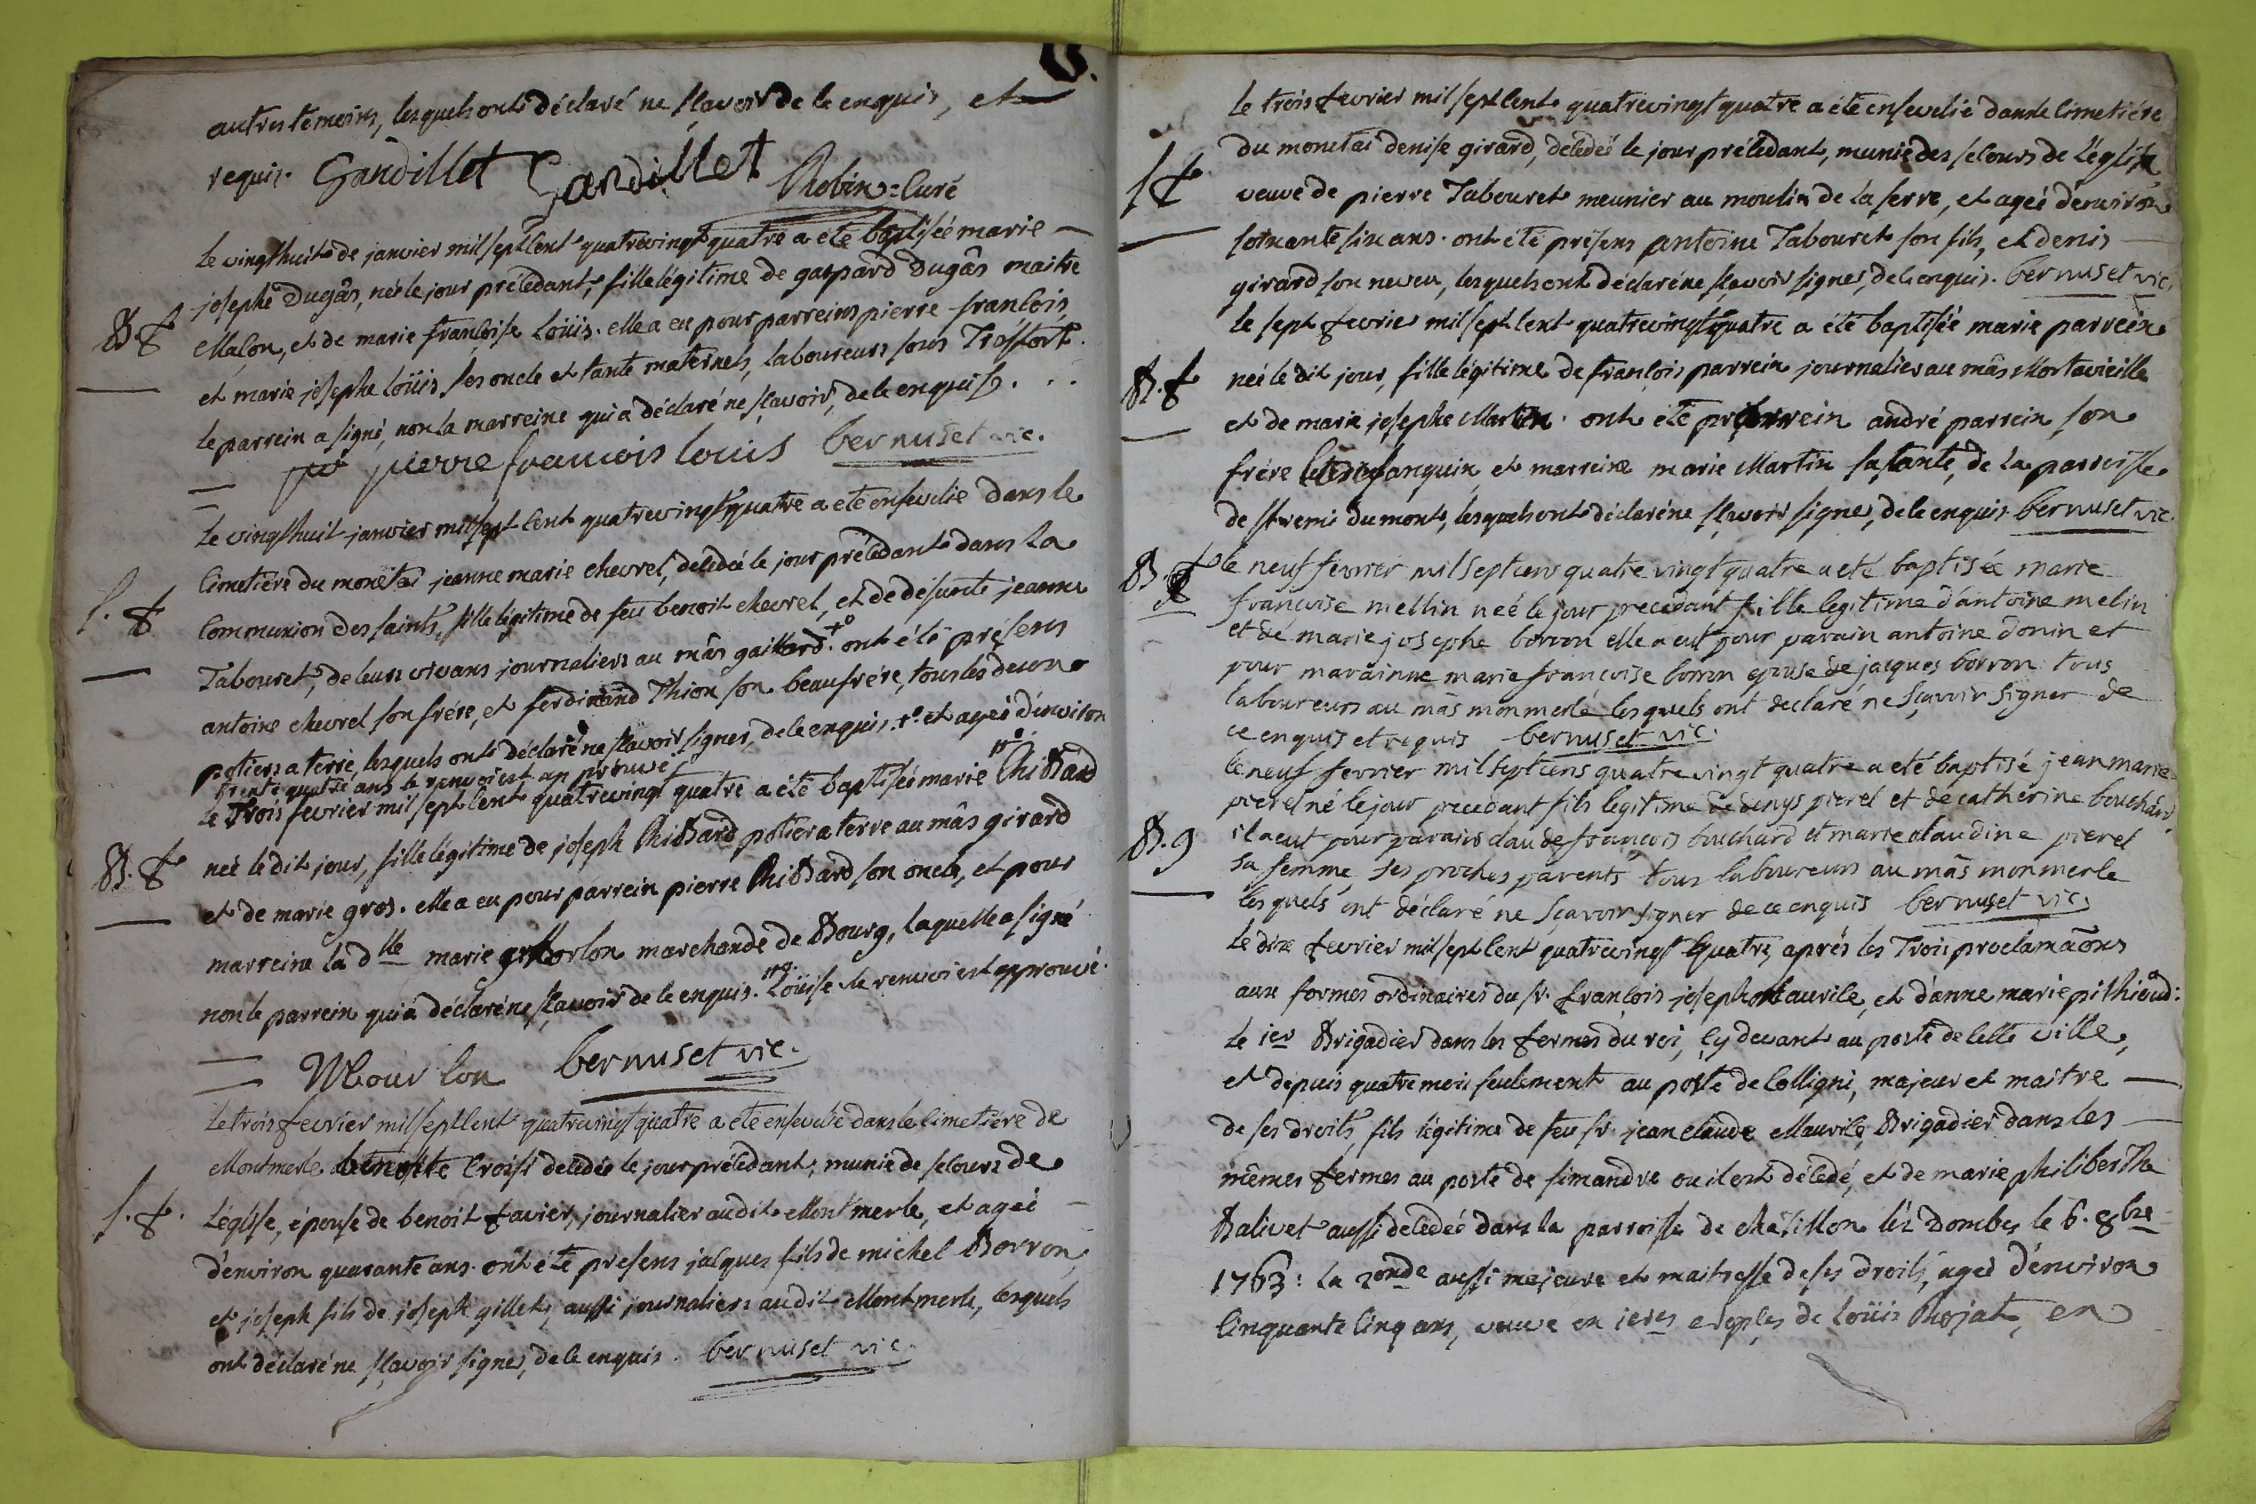 6.
autres témoins, lesquels ont déclaré ne sçavoir de ce enquis, et
requis. Gandillet Gandillet Robin = Curé
Le vingt huit de janvier mil sept cent quatrevingt quatre a été baptisée marie
B. f
josephe Dugâs, née le jour précédant, fille légitime de gaspard Dugâs maitre
Maçon, et de marie françoise Loüis. elle a eu pour parreins pierre françois,
et marie josephe loüis, ses oncle et tante maternels, laboureurs sous Treffort.
le parrein a signé, non la marreine qui a déclaré ne sçavoir, de ce enquise. . .
pierre francois louis bernuset vic.
Le vingt huit janvier mil sept cent quatrevingt quatre a été ensevelie dans le
S. f
Cimetière du monêtai jeanne marie chevrel, décédée le jour précédant dans la
Communion des saints, fille légitime de feu benoit chevrel, et de défunte jeanne
Tabouret, de leurs vivans journaliers au mâs gaillard. +° ont été présens
antoine chevrel son frére, et ferdinand Thion son beaufrére, tous les deux
potiers a terre, lesquels ont déclaré ne sçavoir signer, de ce enquis. +° et agée d'environ
trente quatre ans le renvoi est approuvé
Le Trois fevrier mil sept cent quatrevingt quatre a été baptisée marie # Chibard
B. f
née le dit jour, fille légitime de joseph Chibard potier a terre au mâs girard
et de marie gros. elle a eu pour parrein pierre Chibard son oncle, et pour
marreine la dlle marie Morlon marchande de Bourg, laquelle a signé
non le parrein qui a déclaré ne sçavoir de ce enquis. # Loüise. le renvoi est approuvé.
Mour lon bernuset vic.
Le trois fevrier mil sept cent quatrevingt quatre a été ensevelie dans le Cimetière de
Montmerle benoite Croisi décédée le jour précédant, munie de secours de
S. f.
L'église, épouse de benoit favier, journalier audit Montmerle, et agée
d'environ quarante ans. ont été presens jacques fils de michel Borron,
et joseph fils de joseph gillet, aussi journaliers audit Montmerle, lesquels
ont déclaré ne sçavoir signer, de ce enquis. bernuset vic.
Le trois fevrier mil sept cent quatrevingt quatre a été ensevelie dans le Cimetière
du monétai denise girard, décédée le jour précédant, munie des secours de l'église
S f
veuve de pierre Tabouret meunier au moulin de la serre, et agée d'environ
soixante six ans. ont été présens antoine Tabouret son fils, et denis
girard son neveu, lesquels ont déclaré ne sçavoir signer, de ce enquis. bernuset vic.
Le sept fevrier mil sept cent quatrevingt quatre a été baptisée marie parrein
B. f
née le dit jour, fille légitime de françois parrein journalier au mâs Mortavieille
et de marie josephe Martin. ont été parrein andré parrein son
frére consanguin, et marreine marie Martin sa tante, de la parroisse
de st remi du mont, lesquels ont déclaré ne sçavoir signer, de ce enquis. bernuset vic.
B. f
le neuf fevrier mil sept cens quatre vingt quatre a eté baptisée marie
françoise mellin neé le jour precedant fille legitime d'antoine melin
et de marie josephe borron elle a eut pour parain antoine donin et
pour marainne marie francoise borron epouse de jacques borron tous
laboureurs au mâs monmerle lesquels ont declaré ne sçavoir signer de
ce enquis et requis bernuset vic.
le neuf fevrier mil sept cens quatre vingt quatre a eté baptisé jean marie
pierel né le jour precedant fils legitime de denys pierel et de catherine bouchard
B. g
il a eut pour parains claude françois bouchard et marie claudine pierel
sa femme, ses proches parents tous laboureurs au mâs monmerle
lesquels ont déclaré ne sçavoir signer de ce enquis bernuset vic.
Le dix fevrier mil sept cent quatrevingt quatre, aprés les Trois proclamaõns
aux formes ordinaires du sr. françois joseph Mauvile, et d'anne marie pithioud:
Le ier Brigadier dans les fermes du roi, cy devant au poste de cette ville,
et depuis quatre mois seulement au poste de Colligni, majeur et maitre
de ses droits, fils légitime de feu sr. jean claude Mauvile, Brigadier dans les
mêmes fermes au poste de simandre ou il est décédé, et de marie philiberthe
Balivet aussi décédée dans la parroisse de châtillon léz Dombes le 6. 8bre
1763: la 2onde aussi majeure et maitresse de ses droits, agée d'environ
Cinquante Cinq ans, veuve en ieres de Loüis Chojat, en